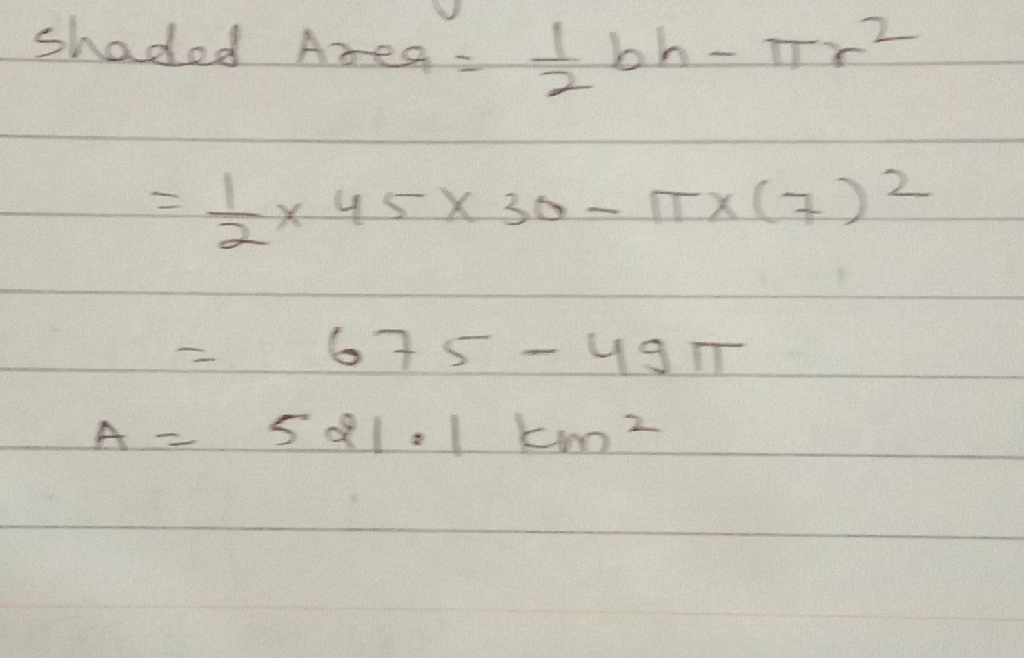 Shaded Area = 1/2 bh - πr²
= 1/2 x 45 x 30 - π x (7)²
= 675 - 49π
A = 521.1 km²